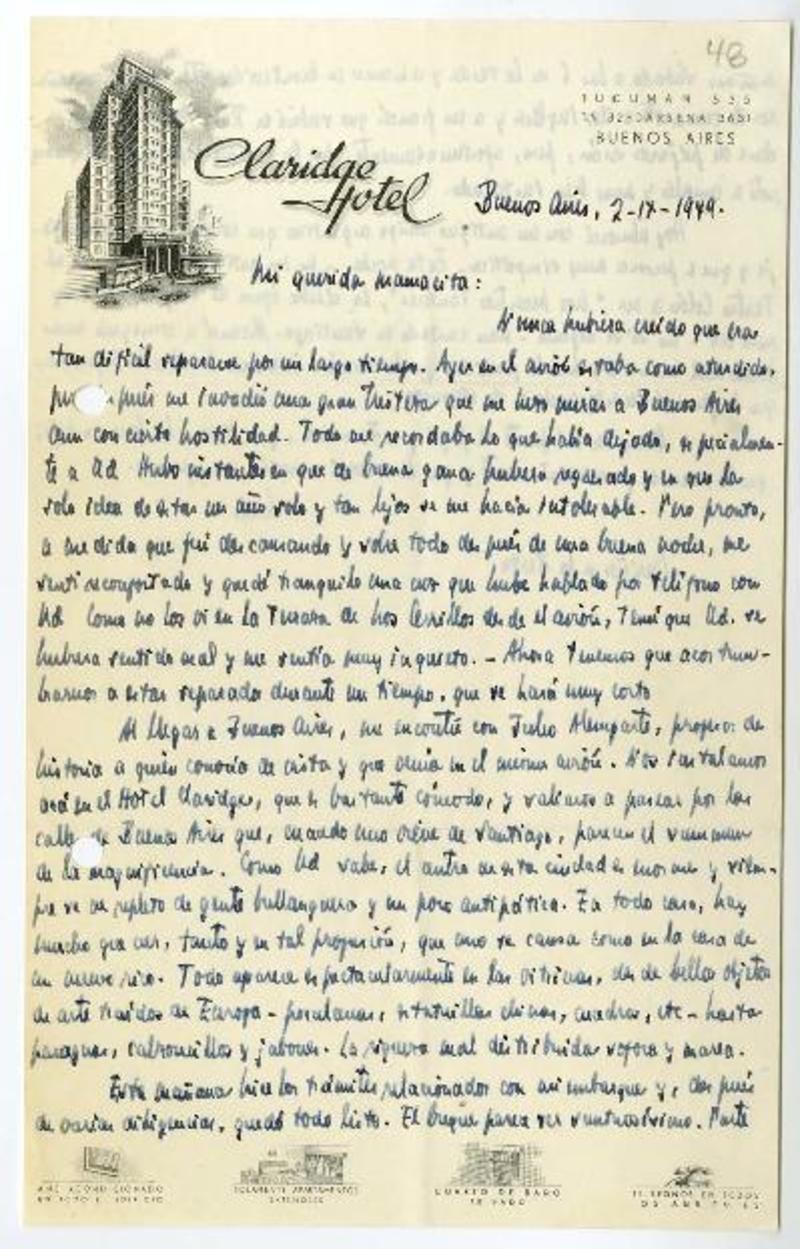 48
TUCUMAN 535
DARSENA 3651
BUENOS AIRES
Claridge
Hotel
Buenos Aires, 2-IX-1949.
Mi querida mamacita:
Nunca hubiera creído que era
tan difícil separarse por un largo tiempo. Ayer en el avión estaba como aturdido,
pués me invadió una gran tristeza que me hizo mirar a Buenos Aires
aun con cierta hostilidad. Todo me recordaba lo que había dejado, especialmen-
te a Ud Hubo instantes en que de buena gana hubiera regresado y en que la
sola idea de estar un año solo y tan lejos se me hacía intolerable. Pero pronto,
a medida que fuí descansando y sobre todo después de una buena noche, me
sentí reconfortado y quedé tranquilo una vez que hube hablado por teléfono con
Ud Como no los vi en la Terraza de Los Cerrillos desde el avión, temí que Ud. se
hubiera sentido mal y me sentía muy inquieto. - Ahora tenemos que acostum-
brarnos a estar separados durante un tiempo, que se hará muy corto
Al llegar a Buenos Aires, me encontré con Julio Alemparte, profesor de
historia a quien conocía de vista y que venía en el mismo avión. Nos instalamos
acá en el Hotel Claridge, que es bastante cómodo, y salimos a pasear por las
calles de Buenos Aires que, cuando uno viene de Santiago, parecen el summum
de la magnificencia. Como Ud sabe, el centro de esta ciudad es enorme y siem-
pre se ve repleto de gente bullanguera y un poco antipática. En todo caso, hay
mucho que ver, tanto y en tal proporción, que uno se cansa como en la casa de
un nuevo rico. Todo aparece espectacularmente en las vitrinas, desde bellos objetos
de arte traídos de Europa - porcelanas, estatuillas chinas, cuadros, etc - hasta
paraguas, calzoncillos y jabones. La riqueza mal distribuida sofoca y marea.
Esta mañana hice los trámites relacionados con mi embarque y, después
de varias diligencias, quedó todo listo. El buque parece ser suntuosísimo. Parte
AIRE ACONDICIONADO
SOLAMENTE APARTAMENTOS
EXTERIORES
CUARTO DE BAÑO
PRIVADO
TELEFONOS EN TODOS